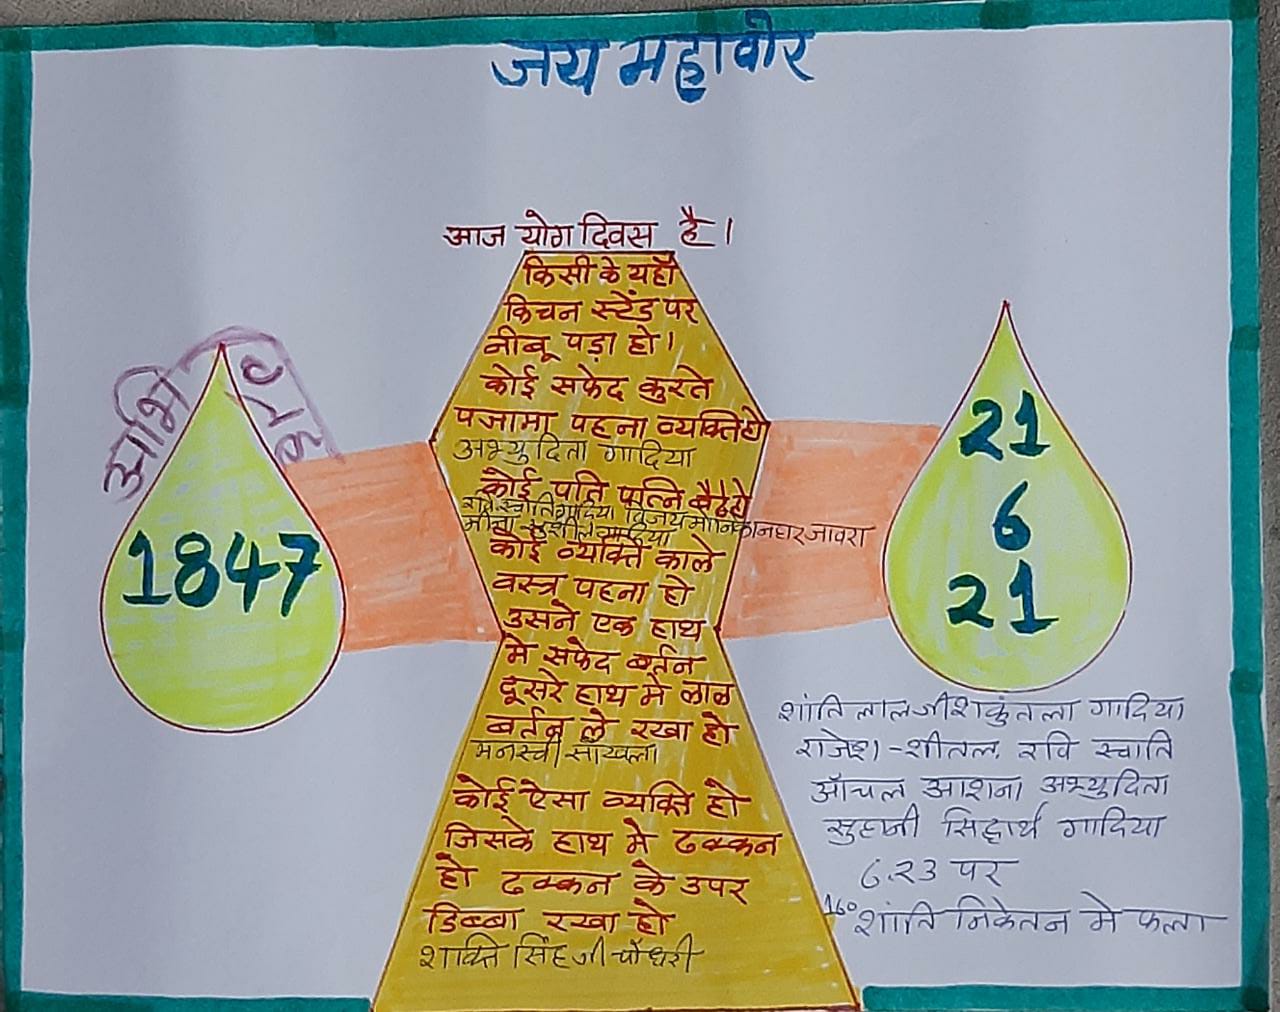 जय महावीर
आज योग दिवस है।
किसी के यहाँ
किचन स्टेंड पर
नीबू पड़ा हो।
कोई सफेद कुरते
पजामा पहना व्यक्ति हो
अभ्युदिता गादिया
कोई पति पत्नि बैठे हो
रवि स्वाति गादिया विजय मानिकानघर जावरा
मीना सुशील गादिया
कोई व्यक्ति काले
वस्त्र पहना हो
उसने एक हाथ
मे सफेद बर्तन
दूसरे हाथ मे लाल
बर्तन ले रखा हो
मनस्वी साँखला
कोई ऐसा व्यक्ति हो
जिसके हाथ मे ढक्कन
हो ढक्कन के उपर
डिब्बा रखा हो
शक्ति सिंह जी चौधरी
अभिग्रह
1847
21
6
21
शांतिलालजी शकुंतला गादिया
राजेश-शीतल, रवि स्वाति
आँचल आशना अभ्युदिता
सुहानी सिद्धार्थ गादिया
6.23 पर
160 शांति निकेतन मे फला